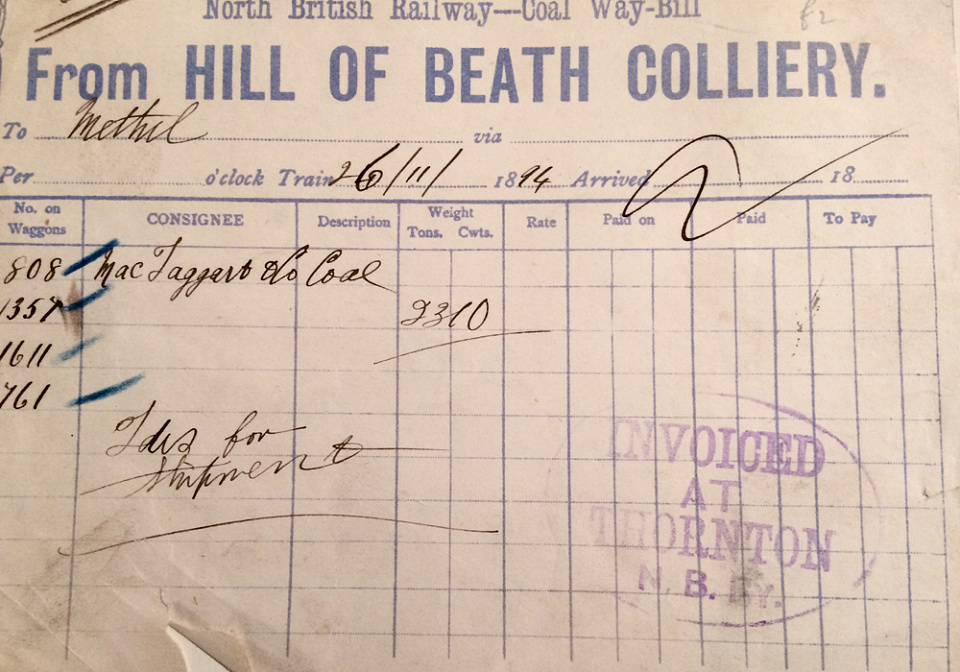 North British Railway—Coal Way-Bill
From HILL OF BEATH COLLIERY.
To Methil via
Per o'clock Train 26/11/ 1894 Arrived 18
No. on Waggons CONSIGNEE Description Weight Tons. Cwts. Rate Paid on Paid To Pay
808 MacTaggart & Co Coal
1357
2310
1611
761
for
shipment
INVOICED
AT
THORNTON
N. B. RY.